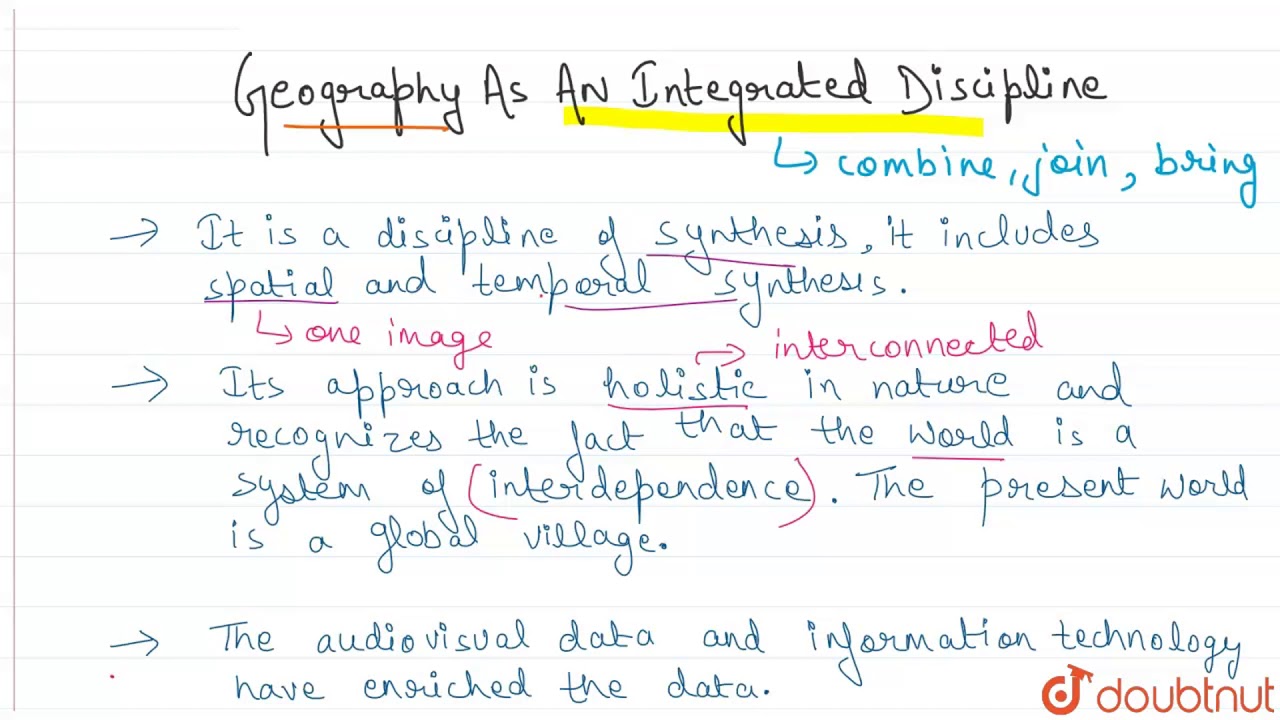 Geography As AN Integrated Discipline
↳ combine, join, bring
→ It is a discipline of synthesis, it includes
spatial and temporal synthesis.
↳ one image
→ interconnected
→ Its approach is holistic in nature and
recognizes the fact that the world is a
system of (interdependence). The present world
is a global village.
→ The audiovisual data and information technology
have enriched the data.
doubtnut